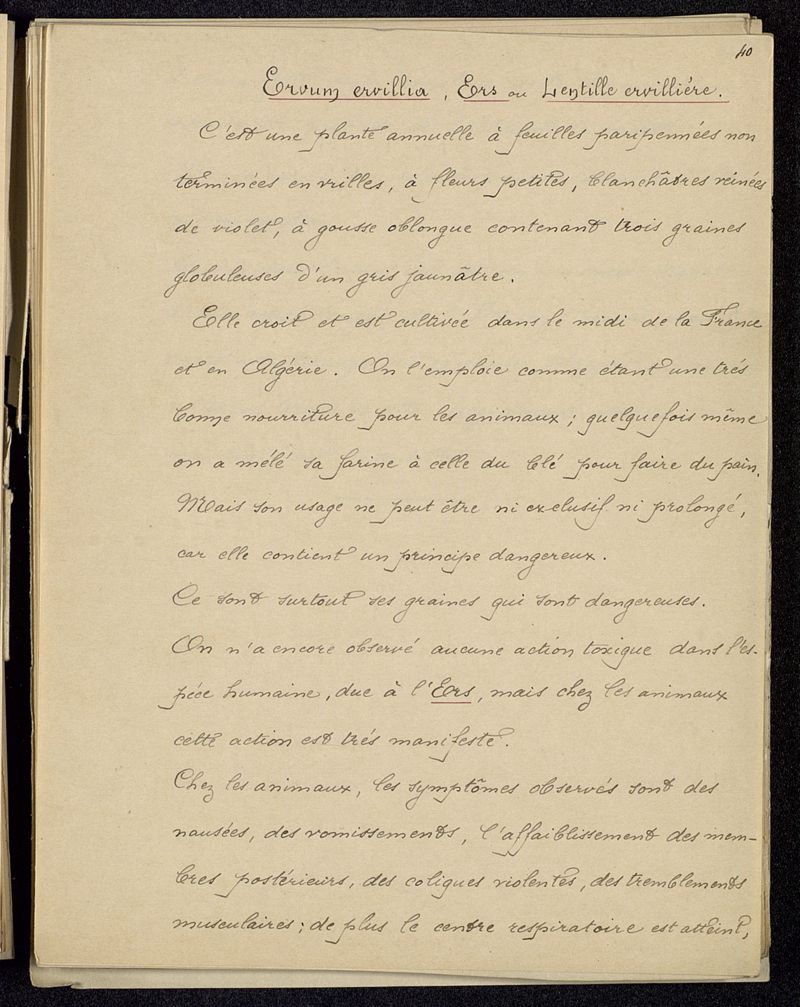 40
Ervum ervillia, Ers ou Lentille ervillière.
C'est une plante annuelle à feuilles paripennées non
terminées en vrilles, à fleurs petites, blanchâtres veinées
de violet, à gousse oblongue contenant trois graines
globuleuses d'un gris jaunâtre.
Elle croit et est cultivée dans le midi de la France
et en Algérie. On l'emploie comme étant une trés
bonne nourriture pour les animaux; quelquefois même
on a mélé sa farine à celle du blé pour faire du pain.
Mais son usage ne peut être ni exclusif ni prolongé,
car elle contient un principe dangereux.
Ce sont surtout ses graines qui sont dangereuses.
On n'a encore observé aucune action toxique dans l'es-
péce humaine, due à l'Ers, mais chez les animaux
cette action est trés manifeste.
Chez les animaux, les symptômes observés sont des
nausées, des vomissements, l'affaiblissement des mem-
bres postérieurs, des coliques violentes, des tremblements
musculaires; de plus le centre respiratoire est atteint,